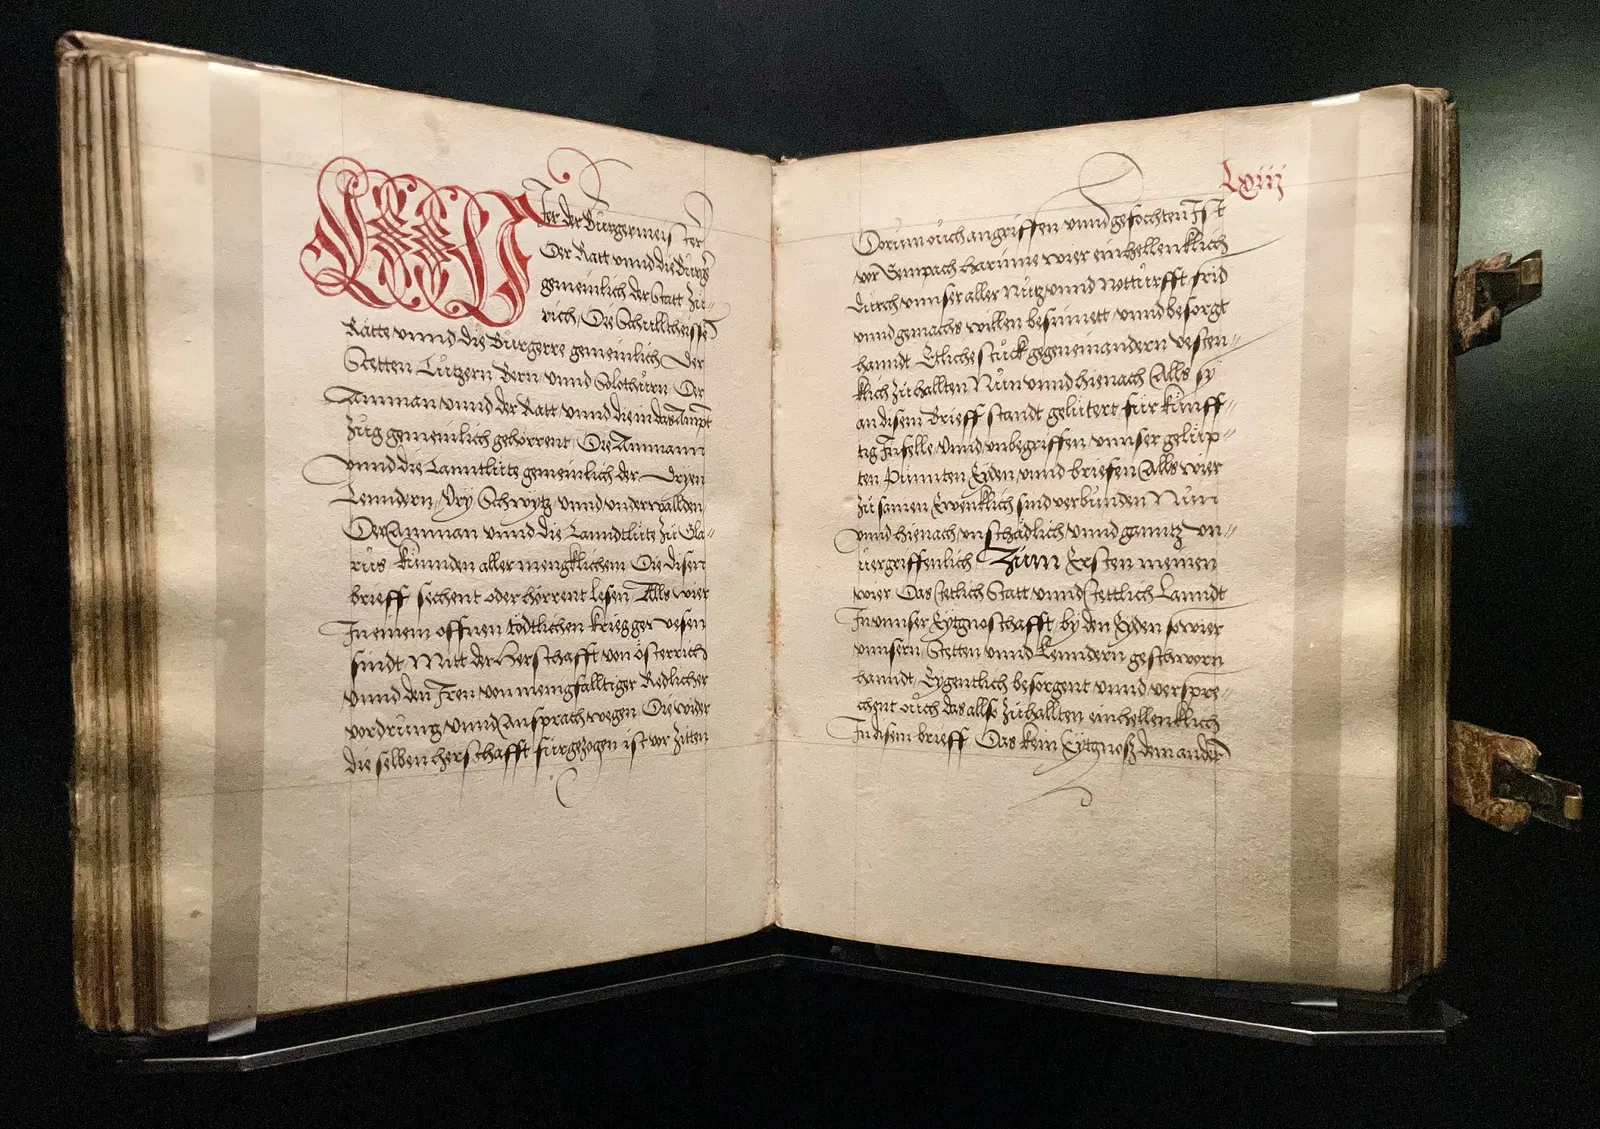 Wier der Bùrgermeister
Der Ratt vnnd die Bùrger
gemeinlich der Statt Zü=
rich, Die Schulltheissen
Rätte vnnd die Bùrgerre gemeinlich der
Stetten Lùtzern Bern vnnd Solothùrn Der
Amman vnnd der Ratt vnnd die in das Ampt
Zùg gemeinlich gehörrent, Die Ammann
vnnd die Lanntlüte gemeinlich der Dryen
Lenndern, Vry Schwytz vnnd vnderwallden
Der Amman vnnd die Lanndtlüte zü Gla=
rùs künnden aller mengklichem Die disen
brieff sechent oder hörrent lesen, Alls wier
In einem offnen tödtlichen krieg gewesen
sindt Mitt der Herrschafft von Österrich
vnnd den Iren von menigfalltiger Redlicher
vordrùng vnnd Ansprach wegen Die wider
die selben herschafft fürgezogen ist vor zitten
Lxiij
Dorùm oùch angriffen vnnd gefochten Ist
vor Sempach harinne wier einhellenklich
dùrch vnnser aller Nùtz vnnd Nottùrfft frid
vnnd gemachs willen besinnett vnnd besorgt
hanndt Ettliche stùck gegen einandern vesten=
klich zü hallten Nùn vnnd hienach Alls sy
an disem Brieff standt gelütert für künff=
tig Infelle vnnd vnbegriffen vnnser gelüp=
ten Pùnnten Eyden vnnd briefen Alls wier
zü samen Ewenklich sind verbùnden Nùn
vnnd hienach vnschädlich vnnd ganntz vn=
üergriffenlich Zùm Ersten meinen
wier Das Jetlich Statt vnnd Jettlich Lanndt
In vnnser Eytgnoschafft by den Eyden so wier
vnnsern Stetten vnnd Lenndern geschworn
hanndt, Eygentlich besorgent vnnd verspre=
chent oùch das allso zü hallten einhellenklich
In disem brieff Das kein Eytgnosz dem andern